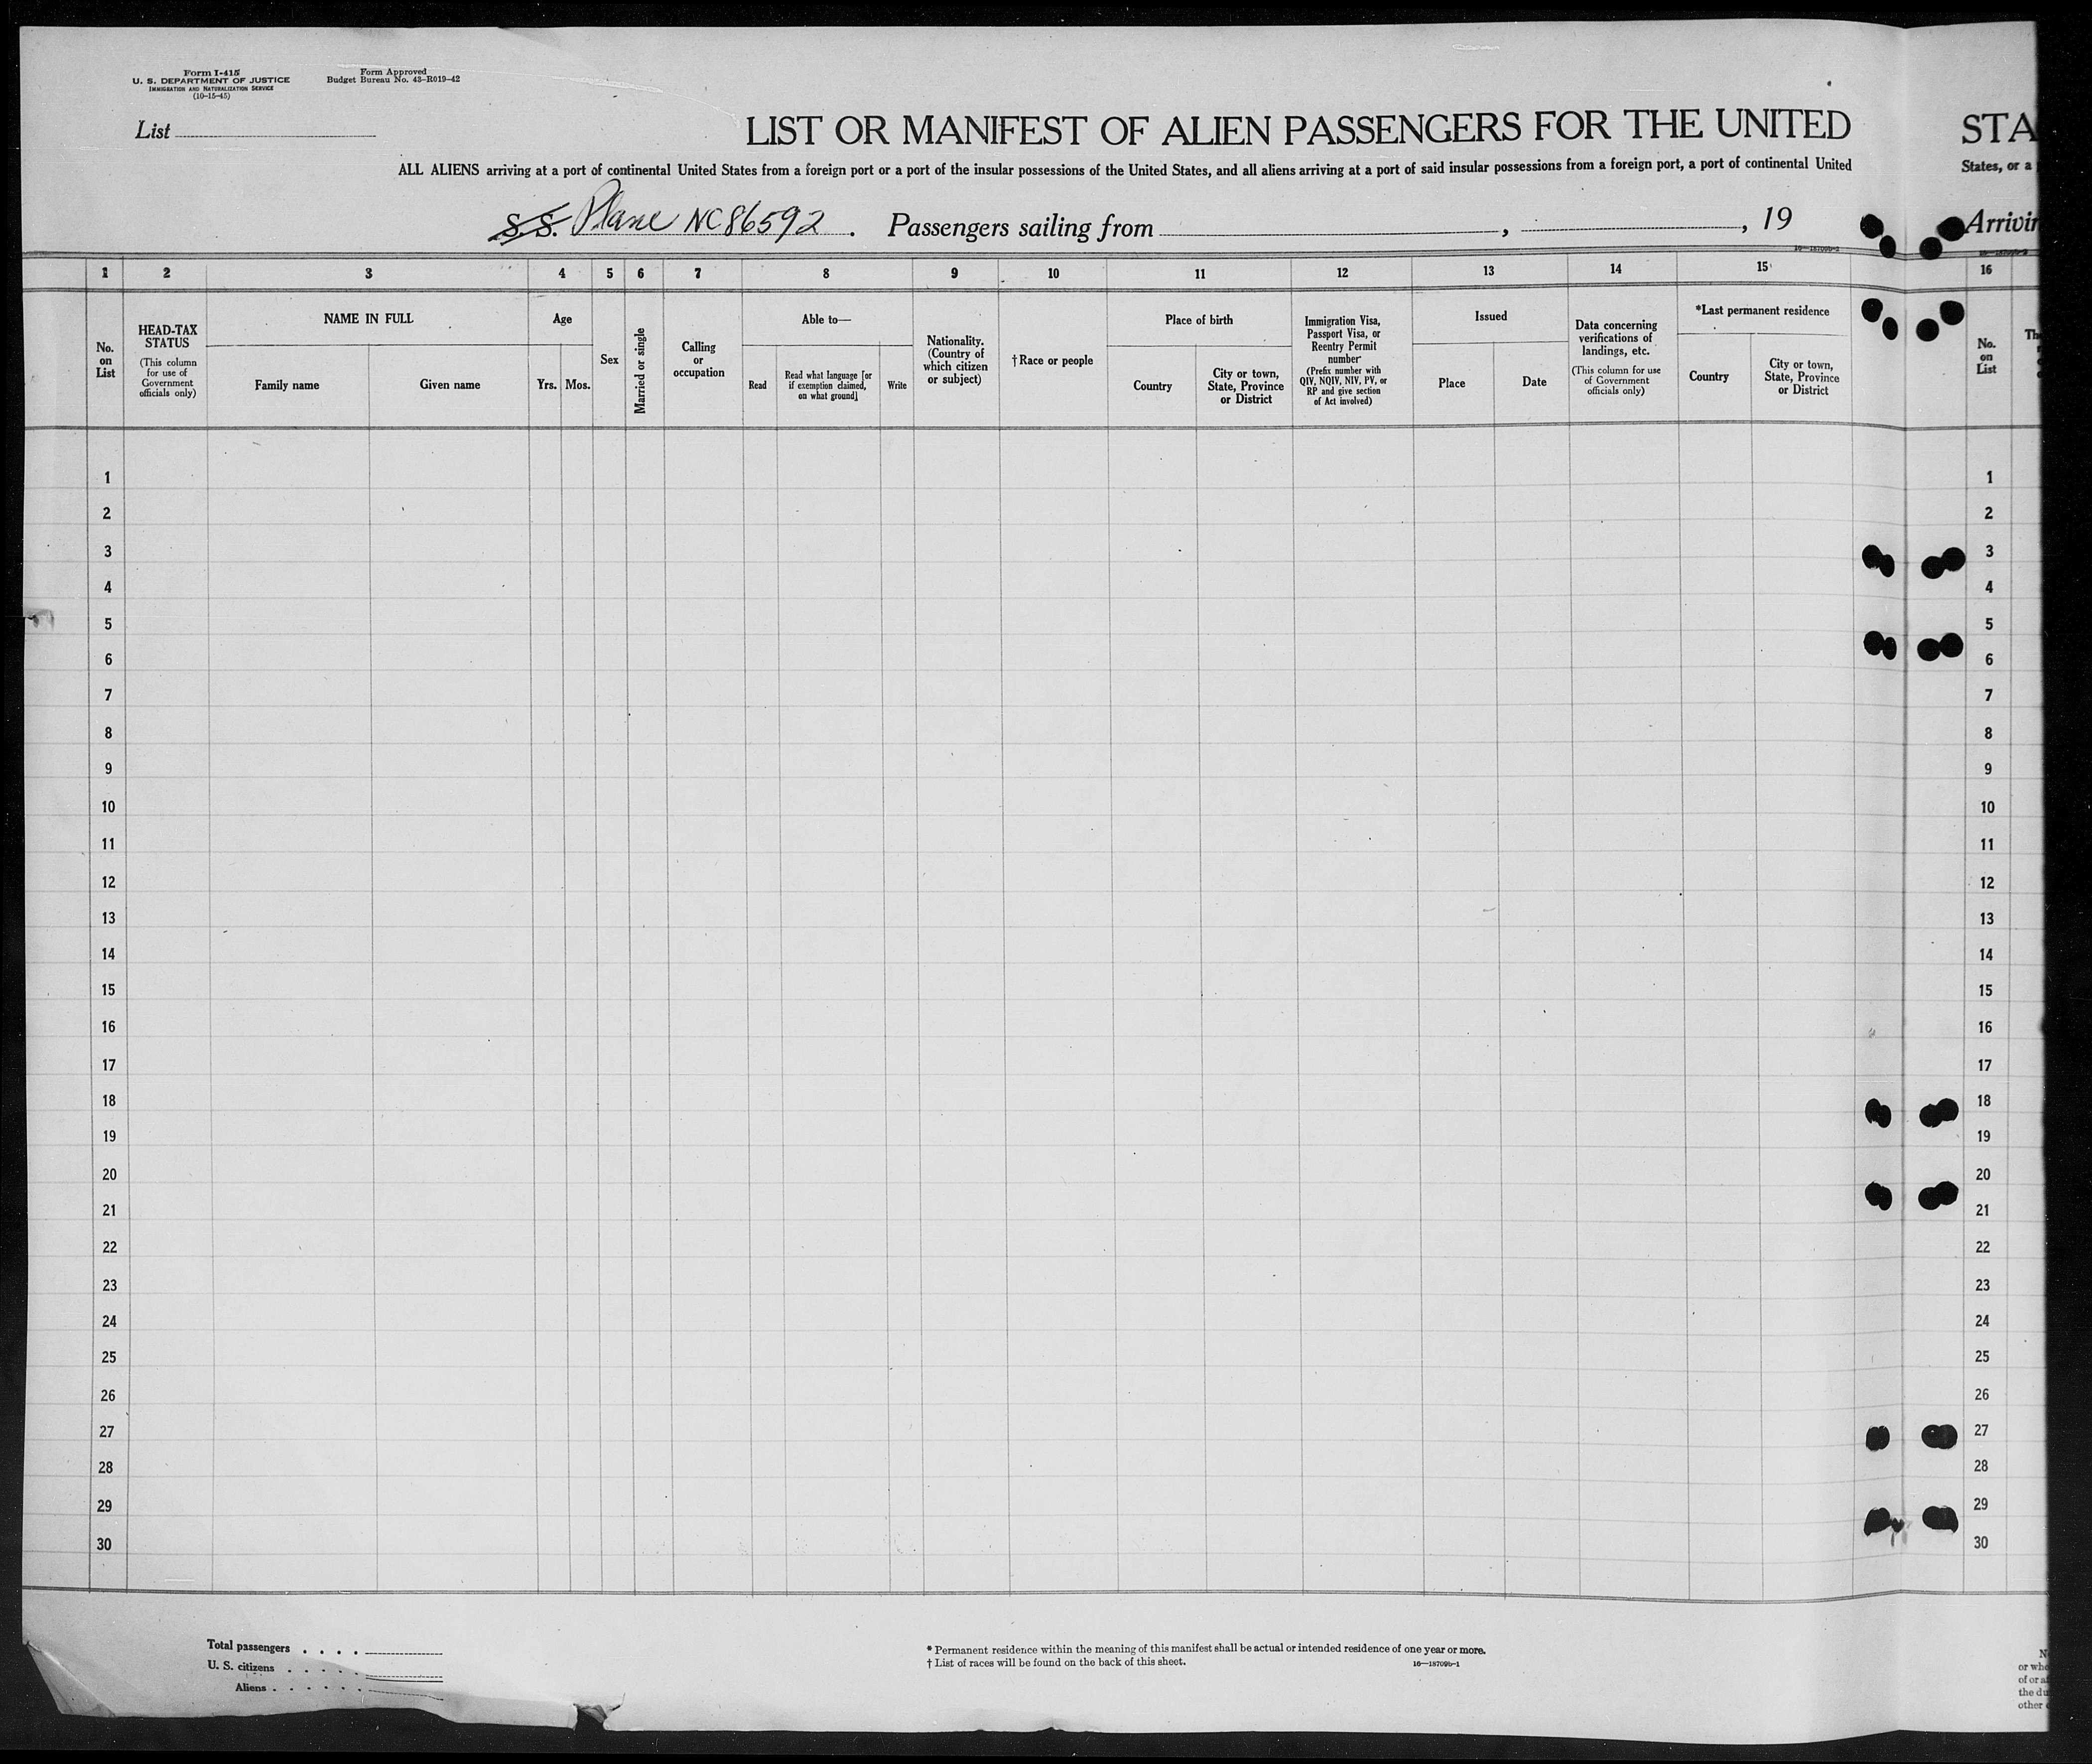 Form I-415
U. S. DEPARTMENT OF JUSTICE
IMMIGRATION AND NATURALIZATION SERVICE
(10-15-45)
Form Approved
Budget Bureau No. 43-R019-42
List
LIST OR MANIFEST OF ALIEN PASSENGERS FOR THE UNITED STA
ALL ALIENS arriving at a port of continental United States from a foreign port or a port of the insular possessions of the United States, and all aliens arriving at a port of said insular possessions from a foreign port, a port of continental United States, or a
S.S. Plane NC86592. Passengers sailing from , , 19 Arrivin
1 2 3 4 5 6 7 8 9 10 11 12 13 14 15 16
No.
on
List
HEAD-TAX
STATUS
(This column
for use of
Government
officials only)
NAME IN FULL
Family name Given name
Age
Yrs. Mos.
Sex
Married or single
Calling
or
occupation
Able to—
Read
Read what language [or
if exemption claimed,
on what ground]
Write
Nationality.
(Country of
which citizen
or subject)
† Race or people
Place of birth
Country
City or town,
State, Province
or District
Immigration Visa,
Passport Visa, or
Reentry Permit
number
(Prefix number with
QIV, NQIV, NIV, PV, or
RP and give section
of Act involved)
Issued
Place Date
Data concerning
verifications of
landings, etc.
(This column for use
of Government
officials only)
*Last permanent residence
Country
City or town,
State, Province
or District
No.
on
List
1 1
2 2
3 3
4 4
5 5
6 6
7 7
8 8
9 9
10 10
11 11
12 12
13 13
14 14
15 15
16 16
17 17
18 18
19 19
20 20
21 21
22 22
23 23
24 24
25 25
26 26
27 27
28 28
29 29
30 30
Total passengers . . . .
U. S. citizens . . . . .
Aliens . . . . . .
* Permanent residence within the meaning of this manifest shall be actual or intended residence of one year or more.
† List of races will be found on the back of this sheet.
16—18709b-1
or who
of or a
the du
other